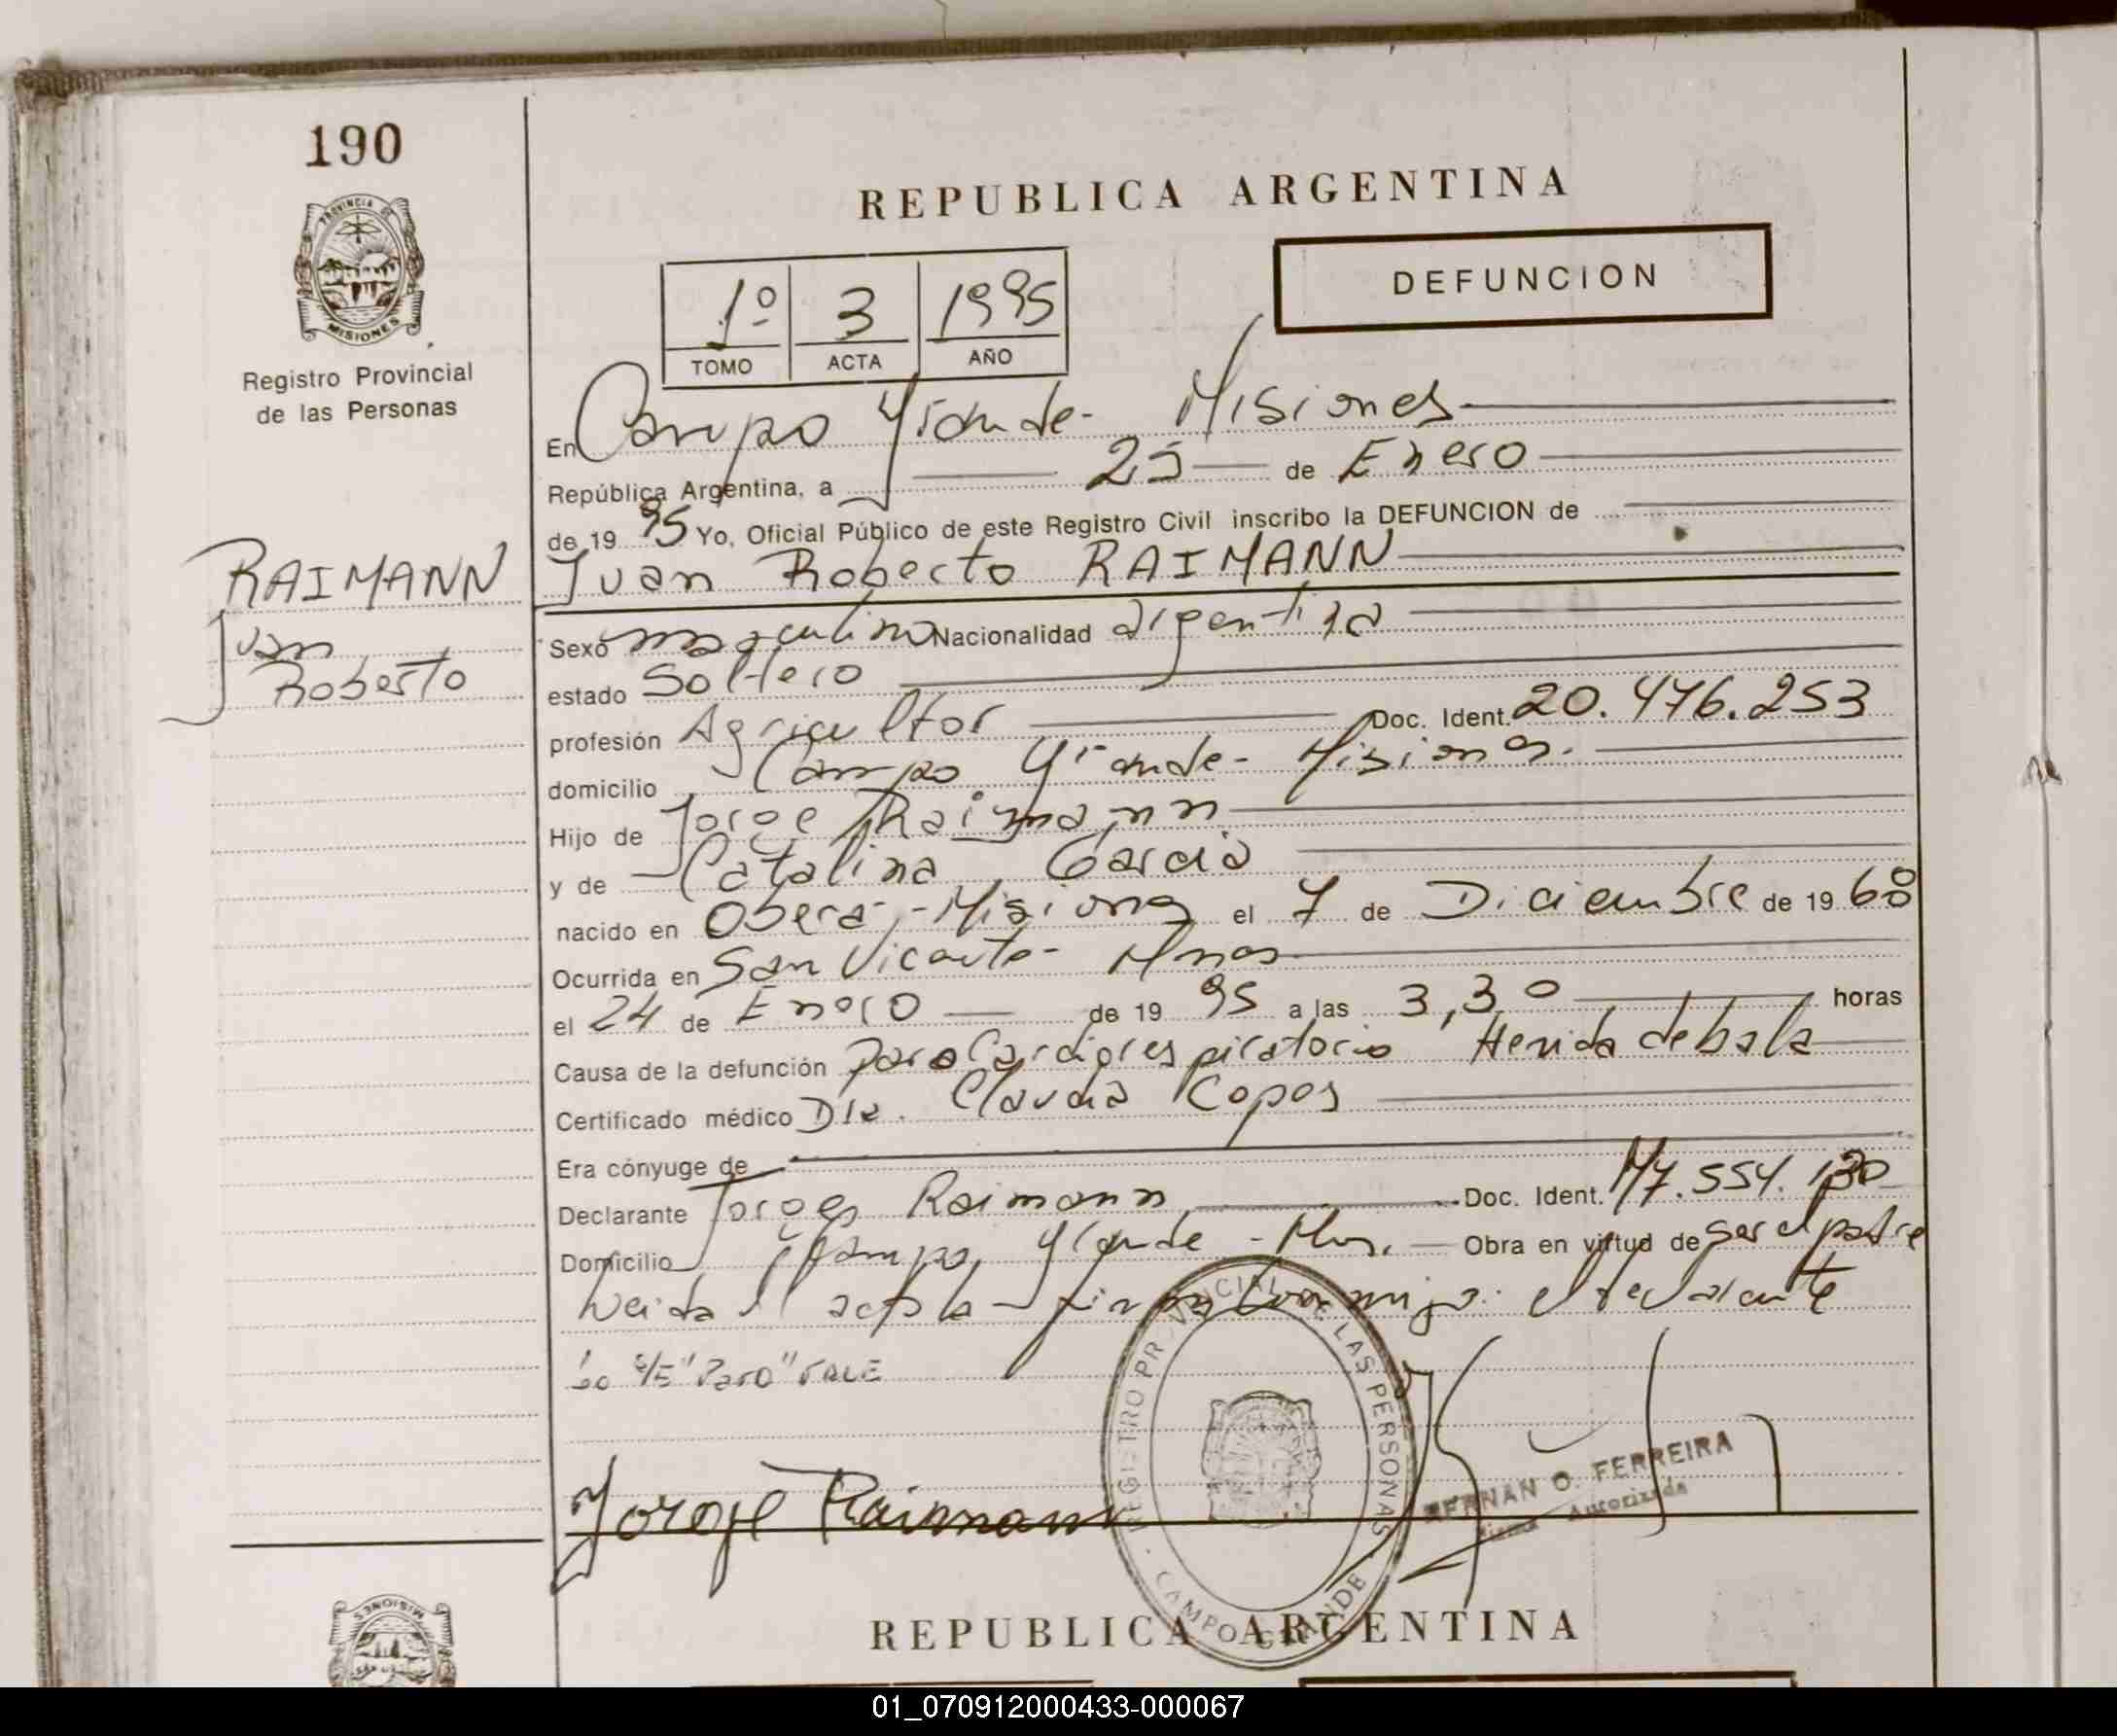 190
PROVINCIA DE
MISIONES
Registro Provincial
de las Personas
RAIMANN
Juan
Roberto
REPUBLICA ARGENTINA
DEFUNCION
1º 3 1995
TOMO ACTA AÑO
En Campo Grande - Misiones
República Argentina, a 25 de Enero
de 19 95 Yo, Oficial Público de este Registro Civil inscribo la DEFUNCION de
Juan Roberto RAIMANN
Sexo masculino Nacionalidad argentina
estado Soltero
profesión Agricultor Doc. Ident. 20.476.253
domicilio Campo Grande - Misiones.
Hijo de Jorge Raimann
y de Catalina Garcia
nacido en Oberá - Misiones el 7 de Diciembre de 19 68
Ocurrida en San Vicente - Mnes
el 24 de Enero de 19 95 a las 3,30 horas
Causa de la defunción paro Cardiorespiratorio Herida de bala
Certificado médico Dra. Claudia Kopes
Era cónyuge de
Declarante Jorge Raimann Doc. Ident. M7.554.130
Domicilio Campo Grande - Mns. Obra en virtud de ser el padre
Leida el acta la firma conmigo el declarante
S/E "Paro" VALE
Jorge Raimann
REGISTRO PROVINCIAL DE LAS PERSONAS
CAMPO GRANDE
HERNAN O. FERREIRA
Firma Autorizada
REPUBLICA ARGENTINA
MISIONES
01_070912000433-000067